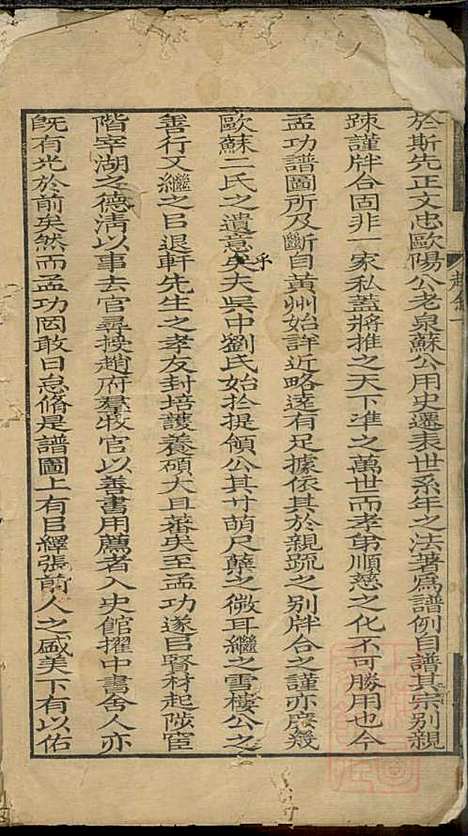 於斯先正文忠歐陽公老泉蘇公用史遷表世系年之法著為譜例自譜其宗別親
踈謹牉合固非一家私蓋將推之天下準之萬世而孝弟順慈之化不可勝用也今
孟功譜圖所及斷自黃州始詳近略遠有足據依其於親疏之別牉合之謹亦庶幾
歐蘇二氏之遺意乎矣夫吳中劉氏始於提領公其廿萌尺蘖之微耳繼之雪樓公之
善行又繼之㠯退軒先生之孝友封培護養碩大且蕃矣至孟功遂㠯賢材起陞宦
階宰湖之德清以事去官尋授趙府羣牧官以善書用薦者入史館擢中書舍人亦
既有光於前矣然而孟功罔敢曰怠脩是譜圖上有㠯繹張前人之盛美下有以佑